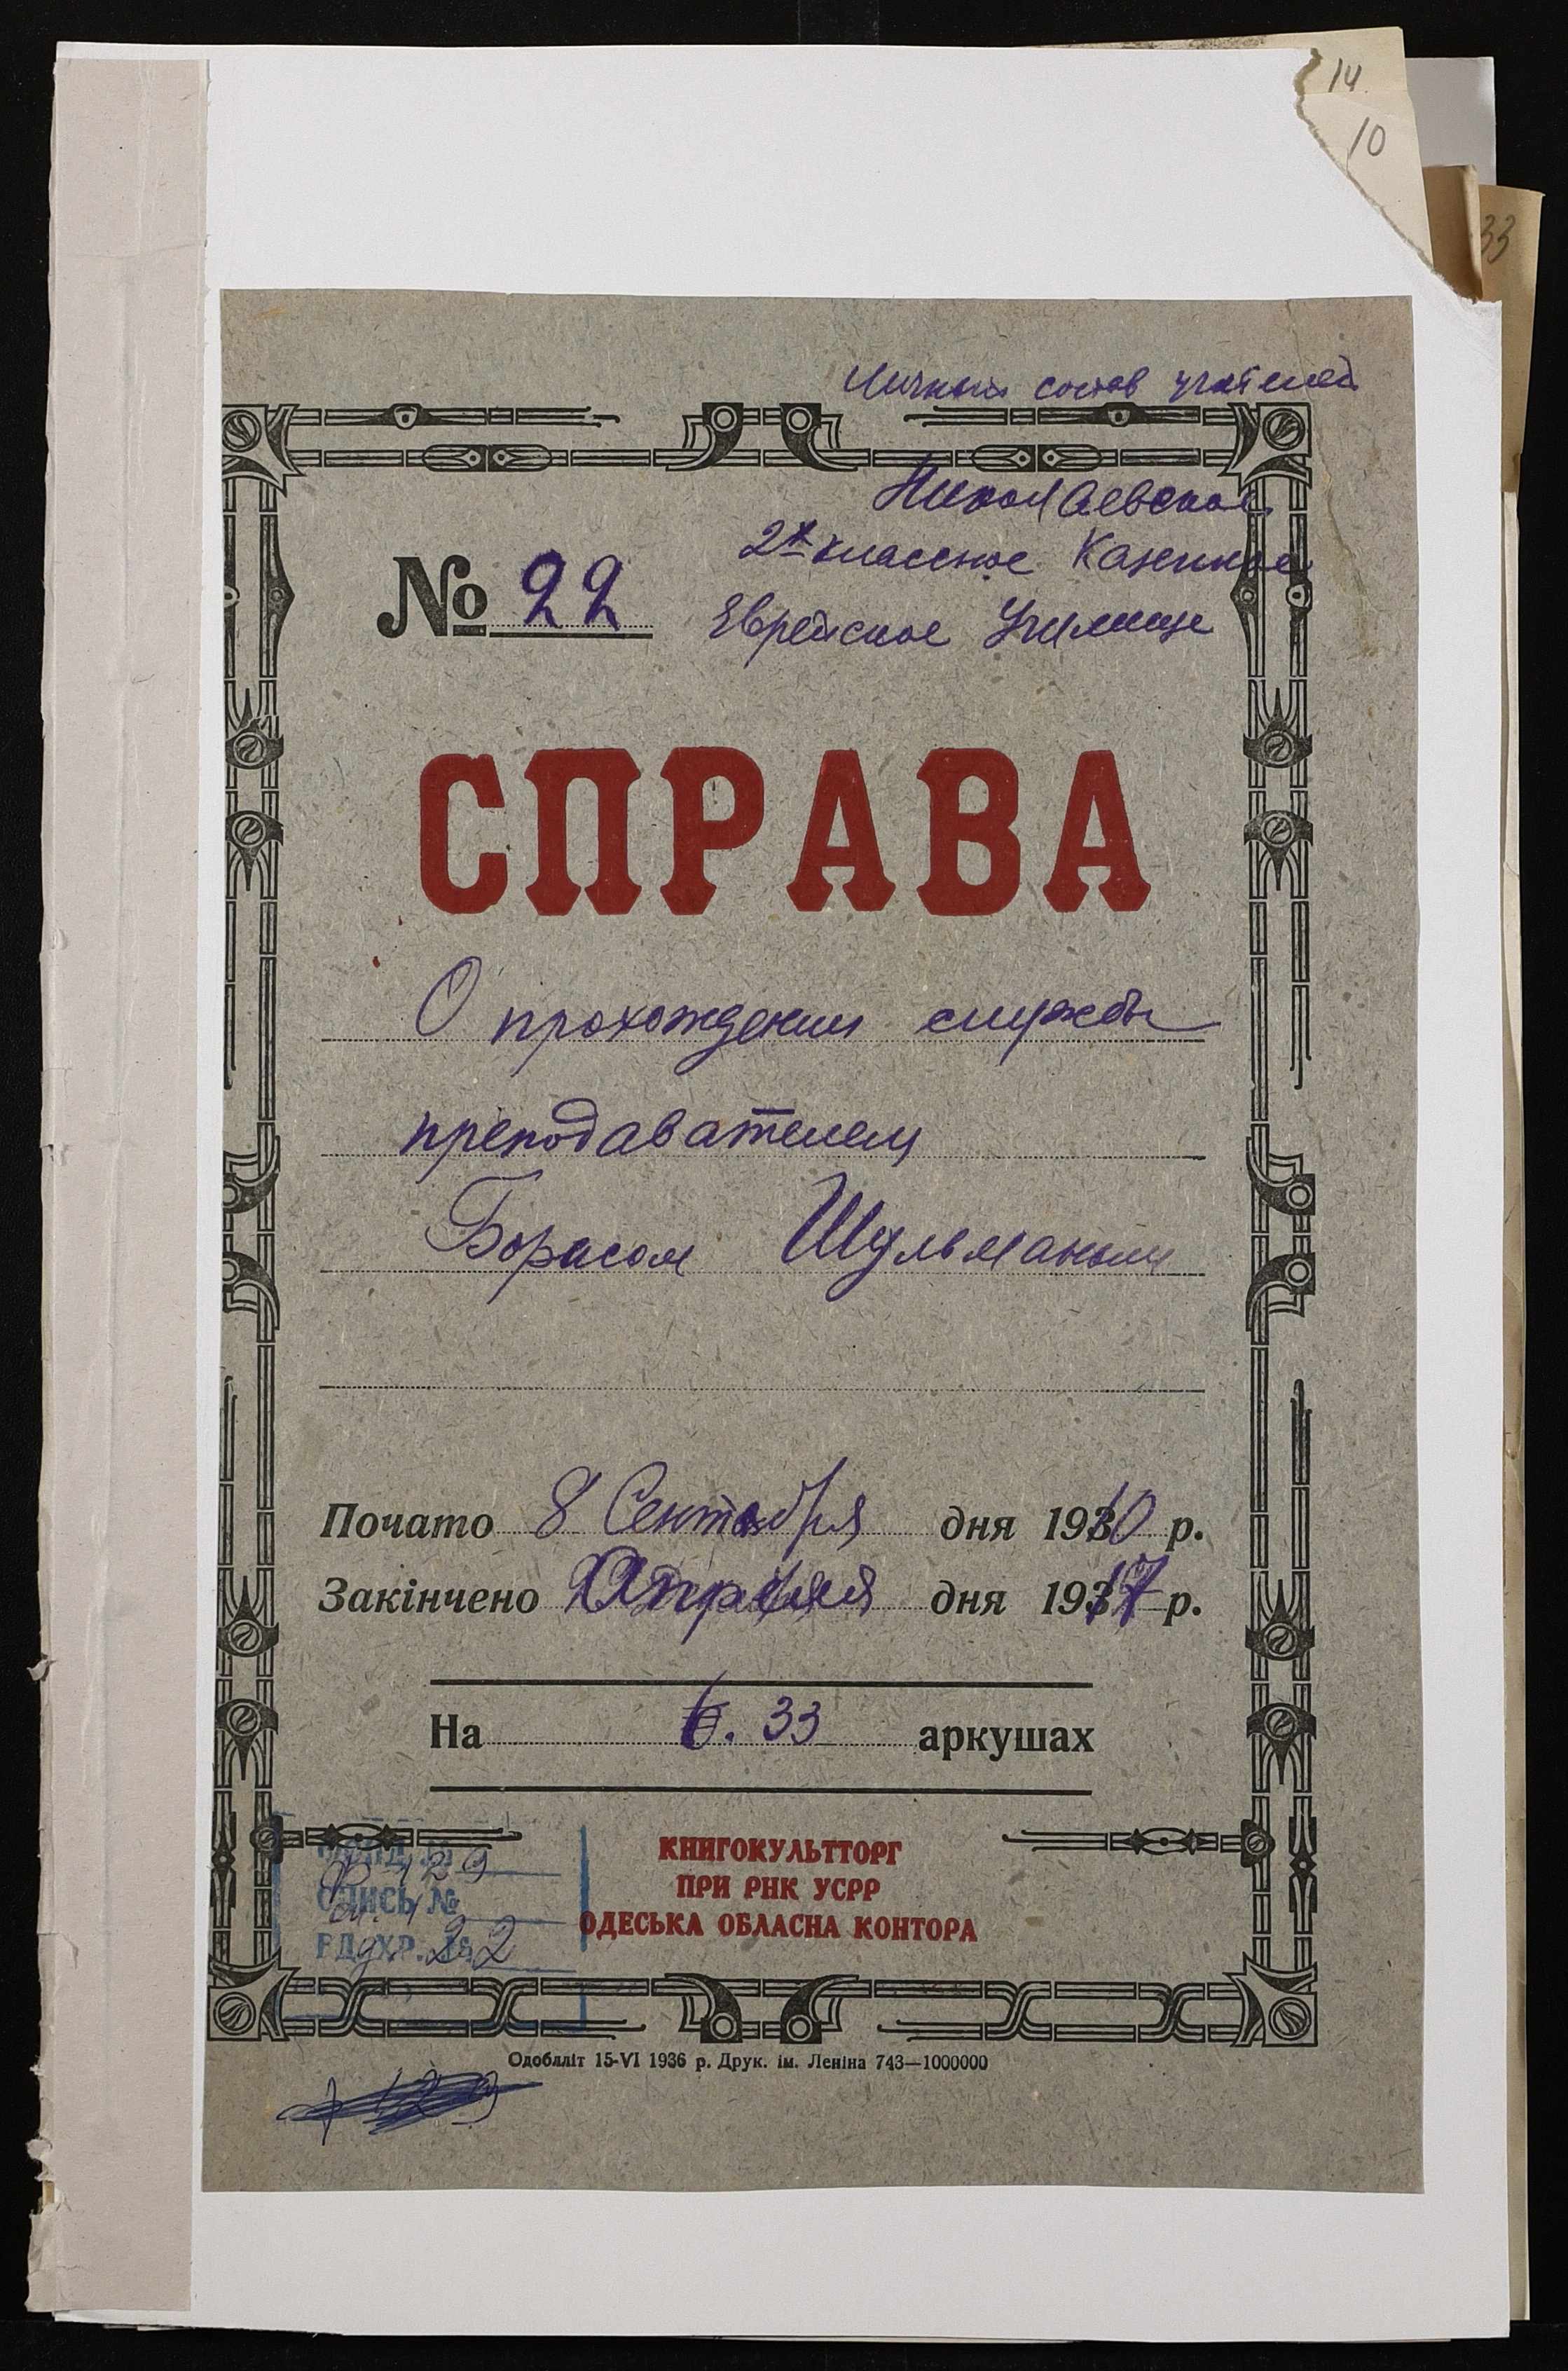 14
10
33
Личный состав учителей
Николаевское
2х классное Казенное
№ 22
Еврейское Училище
СПРАВА
О прохождении службы
преподавателем
Борисом Шульманом
Почато 8 Сентября дня 1910 р.
Закінчено Апреля дня 1917 р.
На 33 аркушах
КНИГОКУЛЬТТОРГ
ПРИ РНК УСРР
ОДЕСЬКА ОБЛАСНА КОНТОРА
Р-129
ОПИСЬ №
ЕД. ХР. № 22
Одоблліт 15-VI 1936 р. Друк. ім. Леніна 743—1000000